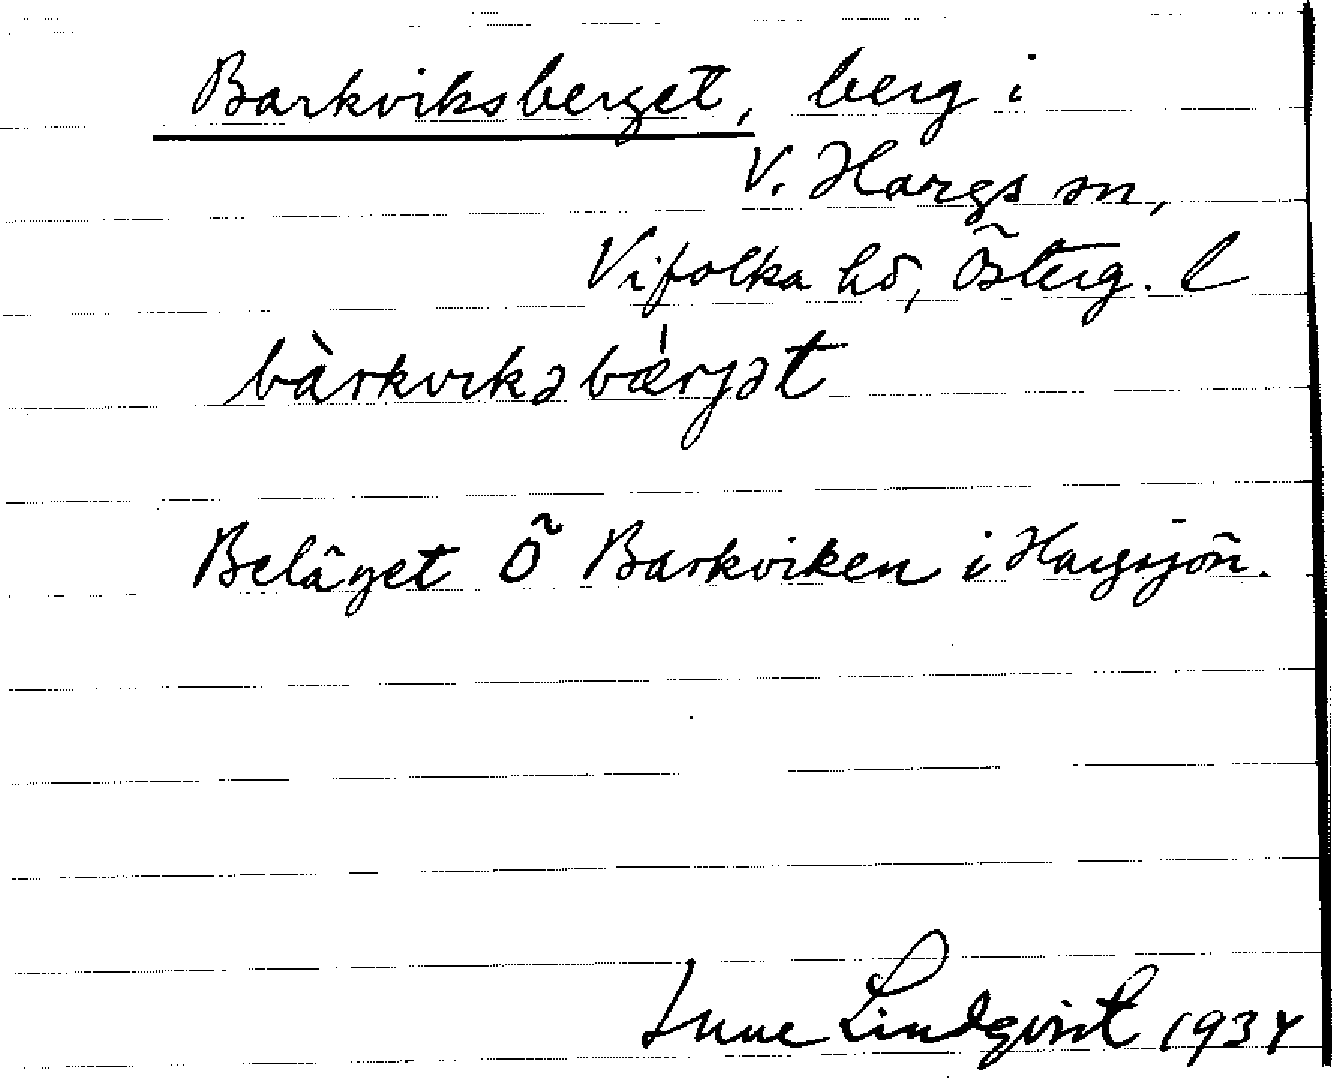 Barkviksberget, berg i
V. Hargs sn,
Vifolka hd, Österg. l
bàrkvıksbæ̀rjət
Beläget Ö Barkviken i Hargsjön.
Sune Lindqvist 1934